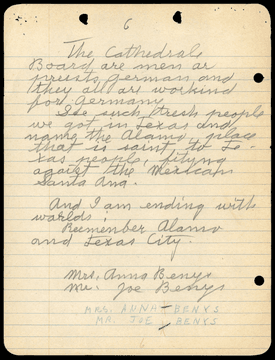 6
The Cathedrals
Board are men ar
priests german and
they all are workind
for Germany
See such trash people
we got in Texas and
name the Alamo, place
that is saint to Te-
xas people, fityng
agaist the Mexican
Santa Ana.
And I am ending with
worlds;
Rumember Alamo
and Texas City.
Mrs. Anna Benys
Mr. Joe Benys
MRS. ANNA - BENYS
MR. JOE - BENKS
6